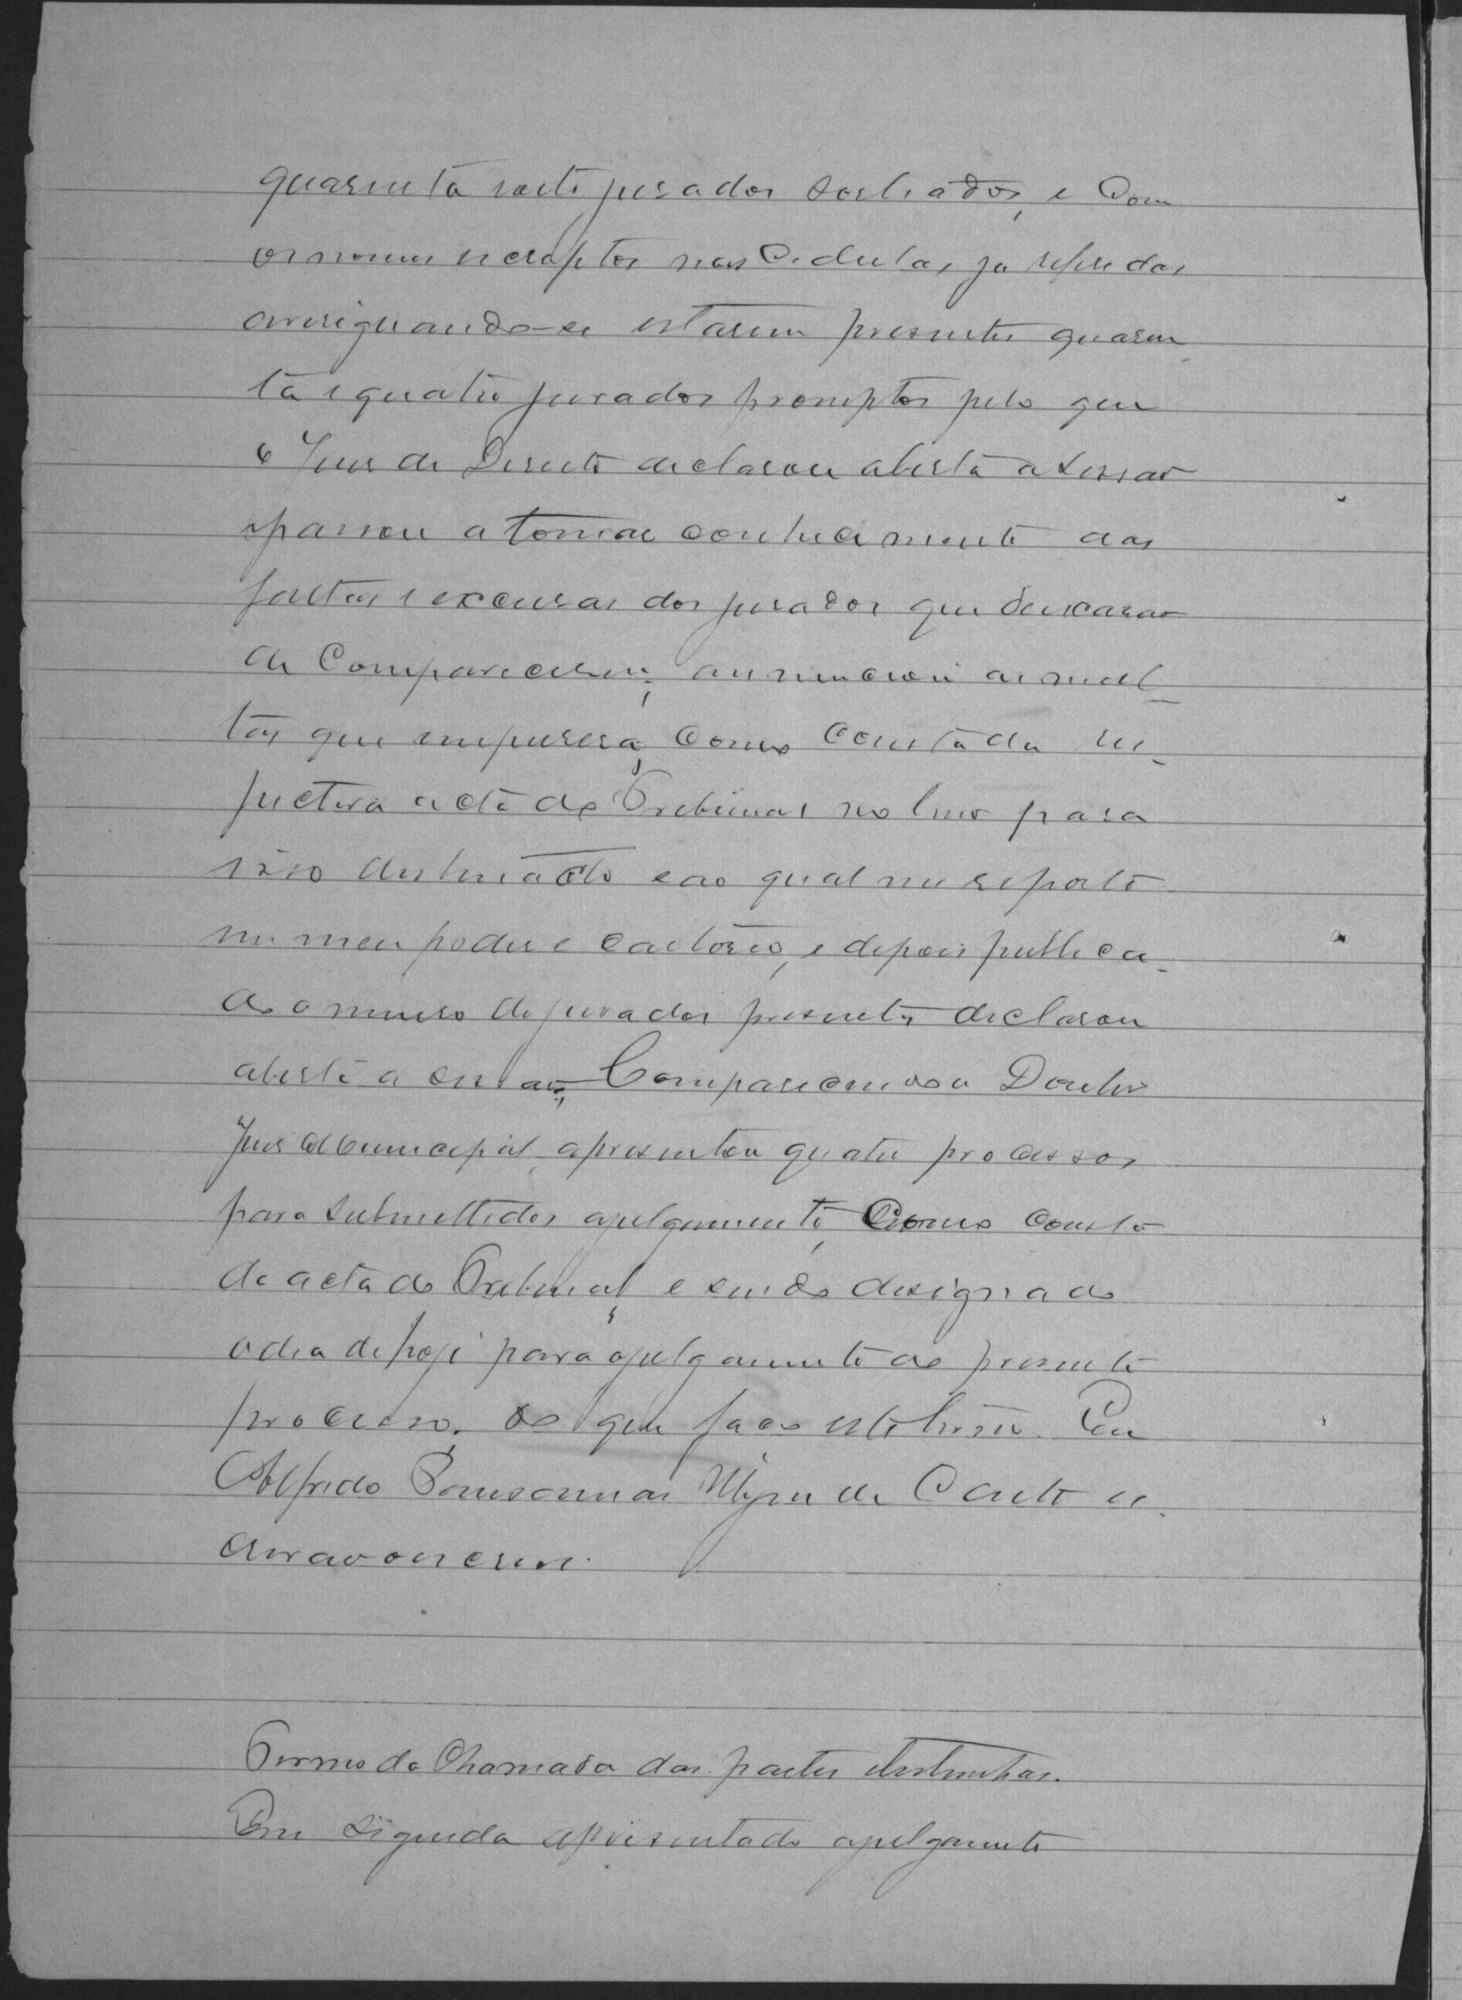 quarenta e oito jurados sorteados, e com
os nomes escriptos nas Cedulas já referidas
averiguando-se estarem presentes quaren
ta e quatro jurados promptos pelo que
o Juiz de Direito declarou aberta a sessão
e passou a tomar conhecimento das
faltas e excusas dos jurados que deixarão
de Comparecerem; annunciou as mul_
tas que impusera, como consta da res_
pectiva acta do Tribunal no livro para
isso destinado e ao qual me reporto
em meu poder e cartorio, e depois publica_
do o numero de jurados presentes declarou
aberta a sessão; Comparecendo o Doutor
Juiz Municipal, apresentou quatro processos
para submettidos a julgamento, Como consta
da acta do Tribunal, e sendo designado
o dia de hoje para o julgamento do presente
processo. do que faço este termo. Eu
Alfredo de Couto es_
crivão o escrevi.
Termo da Chamada das partes e testemunhas.
Em seguida apresentado a julgamento